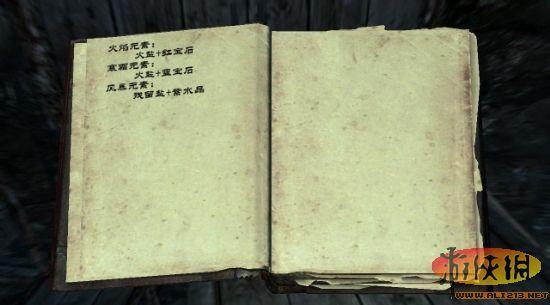 火焰元素：
火盐+红宝石
寒霜元素：
火盐+蓝宝石
风暴元素：
残留盐+紫水晶
游侠网
WWW.ALI213.NET